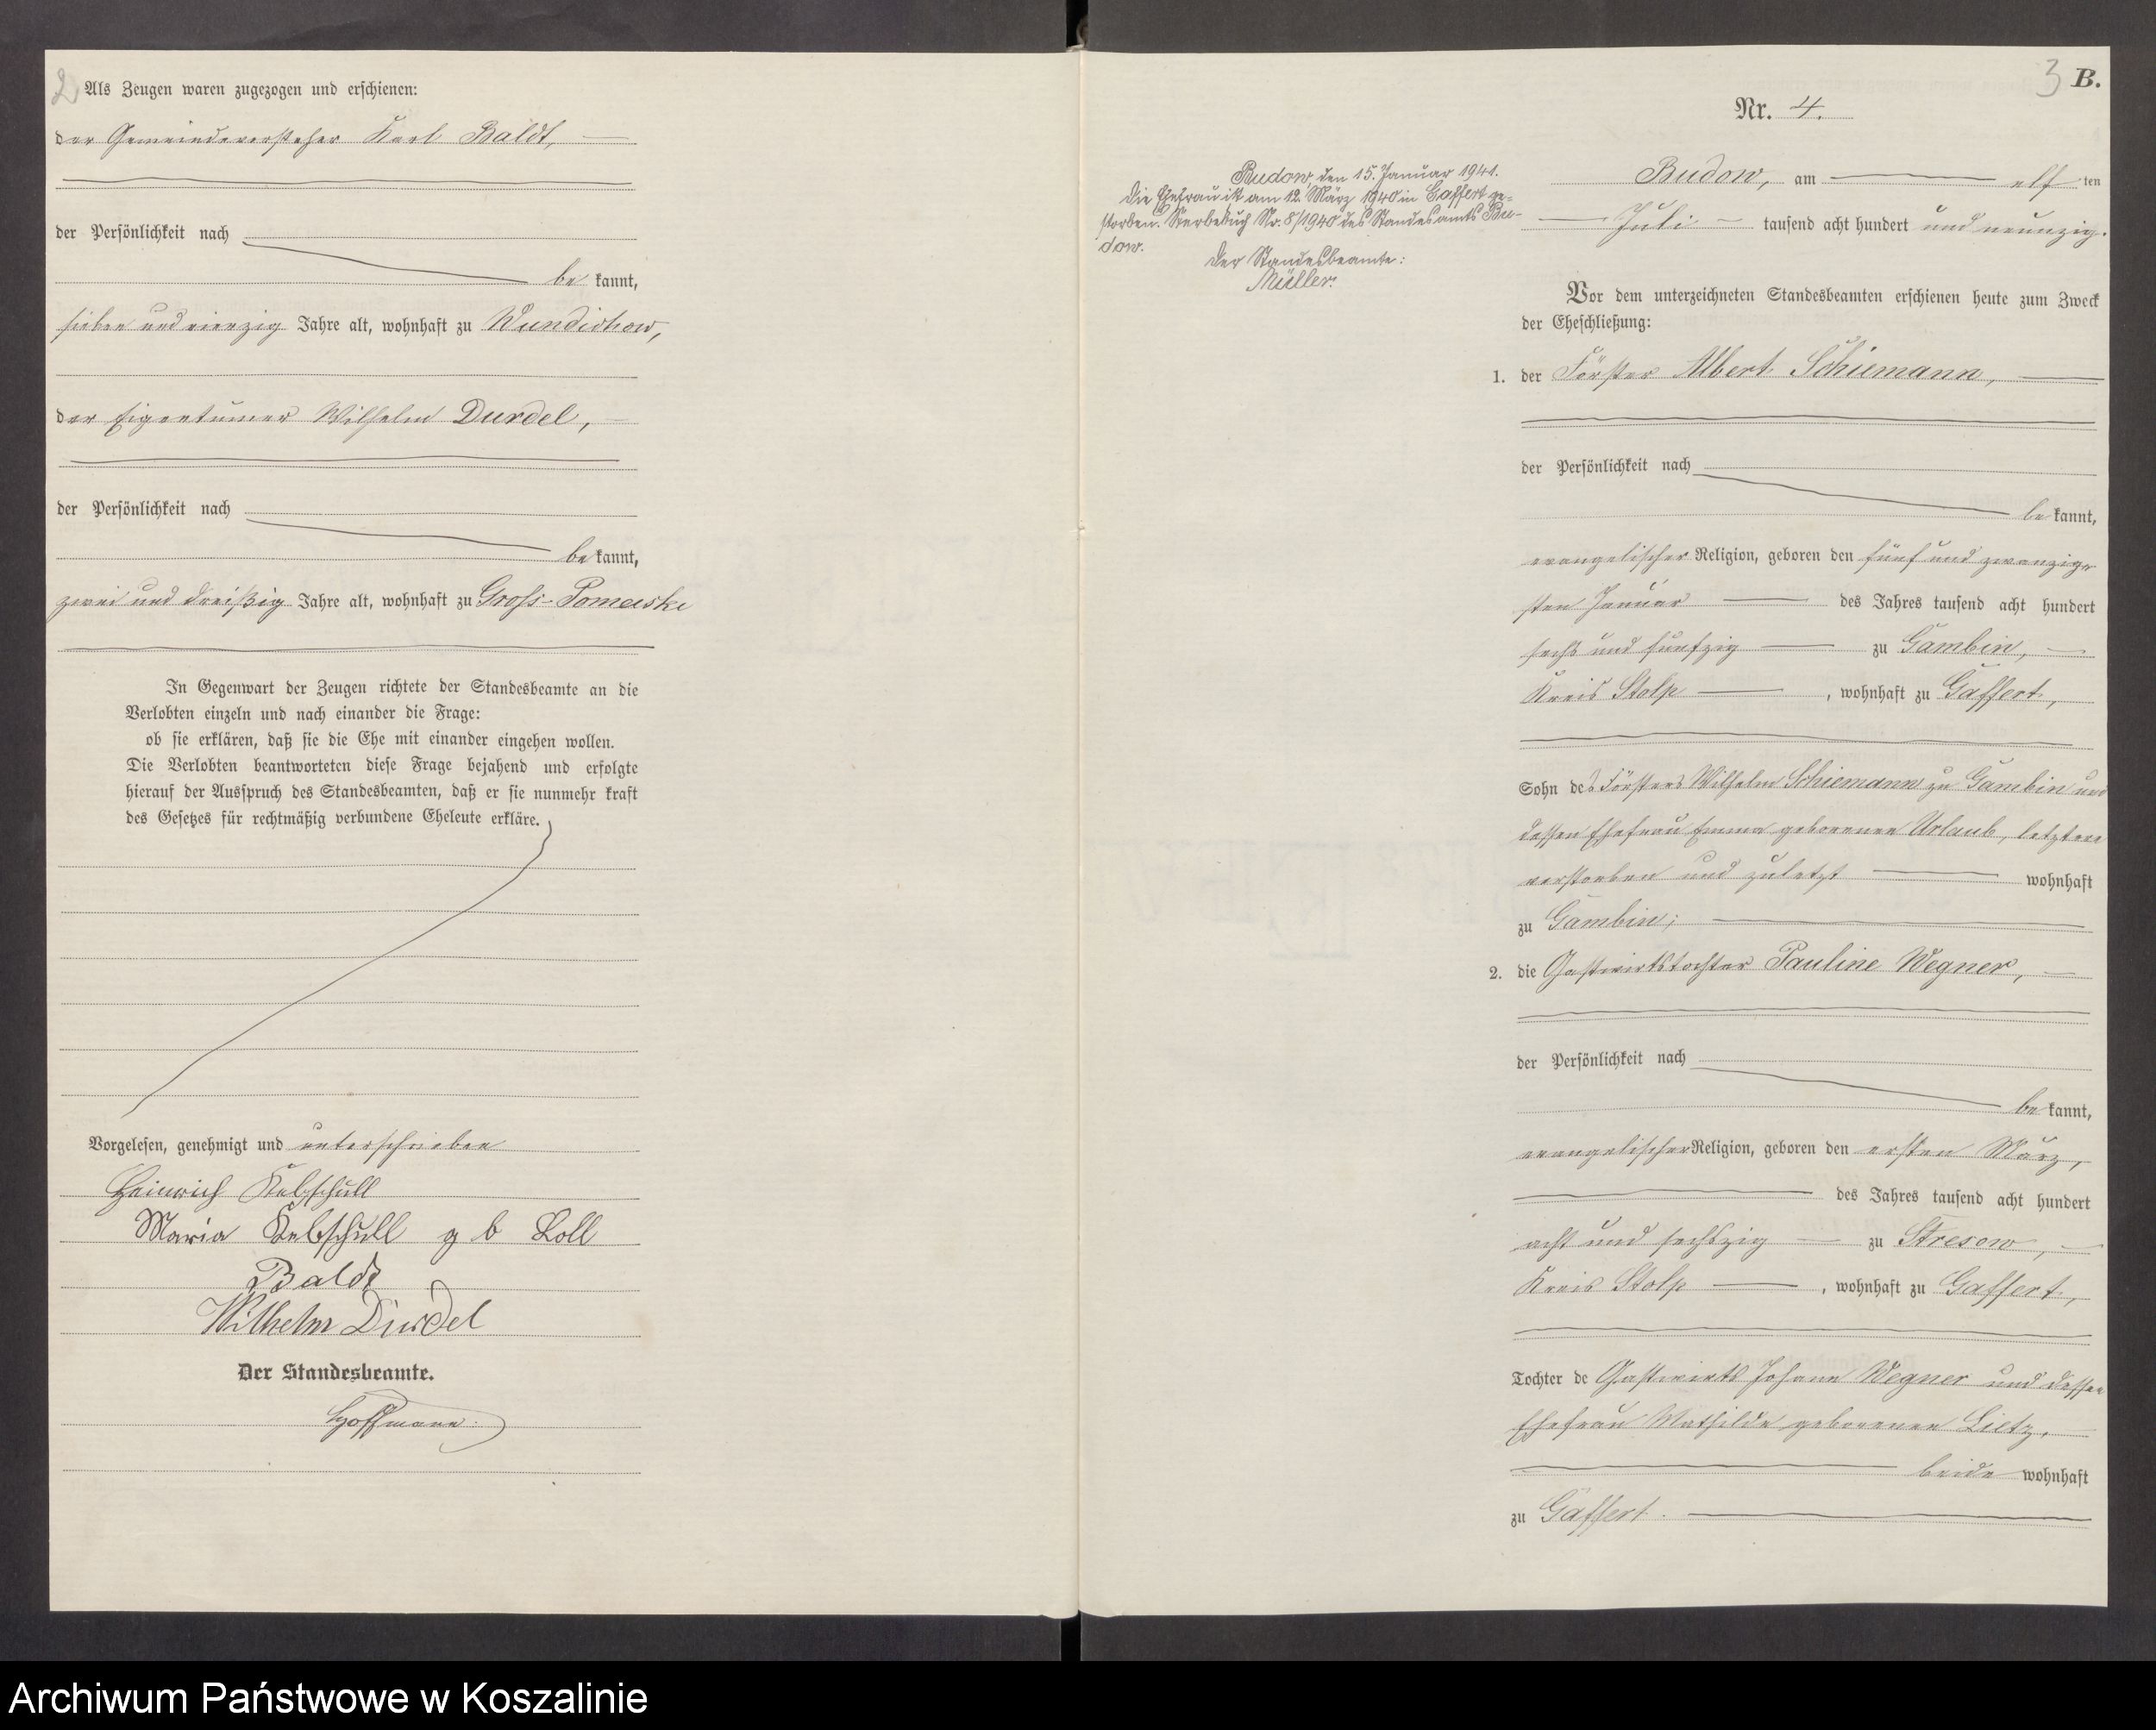 2
Als Zeugen waren zugezogen und erschienen:
der Gemeindevorsteher Karl Baldt,
der Persönlichkeit nach
be kannt,
sieben und vierzig Jahre alt, wohnhaft zu Wundichow,
der Eigentümer Wilhelm Durdel,
der Persönlichkeit nach
be kannt,
zwei und dreißig Jahre alt, wohnhaft zu Gross-Pomeiske
In Gegenwart der Zeugen richtete der Standesbeamte an die
Verlobten einzeln und nach einander die Frage:
ob sie erklären, daß sie die Ehe mit einander eingehen wollen.
Die Verlobten beantworteten diese Frage bejahend und erfolgte
hierauf der Ausspruch des Standesbeamten, daß er sie nunmehr kraft
des Gesetzes für rechtmäßig verbundene Eheleute erkläre.
Vorgelesen, genehmigt und unterschrieben
Heinrich Kebschull
Maria Kebschull g b Loll
Baldt
Wilhelm Durdel
Der Standesbeamte.
Hoffmann.
3 B.
Nr. 4.
Budow, den 15. Januar 1941.
Die Ehefrau ist am 12. März 1940 in Gaffert ge-
storben. Sterbebuch Nr. 8/1940 des Standesamts Bu-
dow.
Der Standesbeamte:
Müller.
Budow, am elf ten
Juli tausend acht hundert und neunzig.
Vor dem unterzeichneten Standesbeamten erschienen heute zum Zweck
der Eheschließung:
1. der Förster Albert Schiemann,
der Persönlichkeit nach
be kannt,
evangelischer Religion, geboren den fünf und zwanzig-
sten Januar des Jahres tausend acht hundert
sechs und fünfzig zu Gambin,
Kreis Stolp, wohnhaft zu Gaffert,
Sohn des Försters Wilhelm Schiemann zu Gambin und
dessen Ehefrau Emma geborenen Urlaub, letztere
verstorben und zuletzt wohnhaft
zu Gambin;
2. die Gastwirtstochter Pauline Wegner,
der Persönlichkeit nach
be kannt,
evangelischer Religion, geboren den ersten März,
des Jahres tausend acht hundert
acht und sechszig zu Stresow,
Kreis Stolp, wohnhaft zu Gaffert,
Tochter de Gastwirts Johann Wegner und dessen
Ehefrau Mathilde geborenen Lietz,
beide wohnhaft
zu Gaffert.
Archiwum Państwowe w Koszalinie